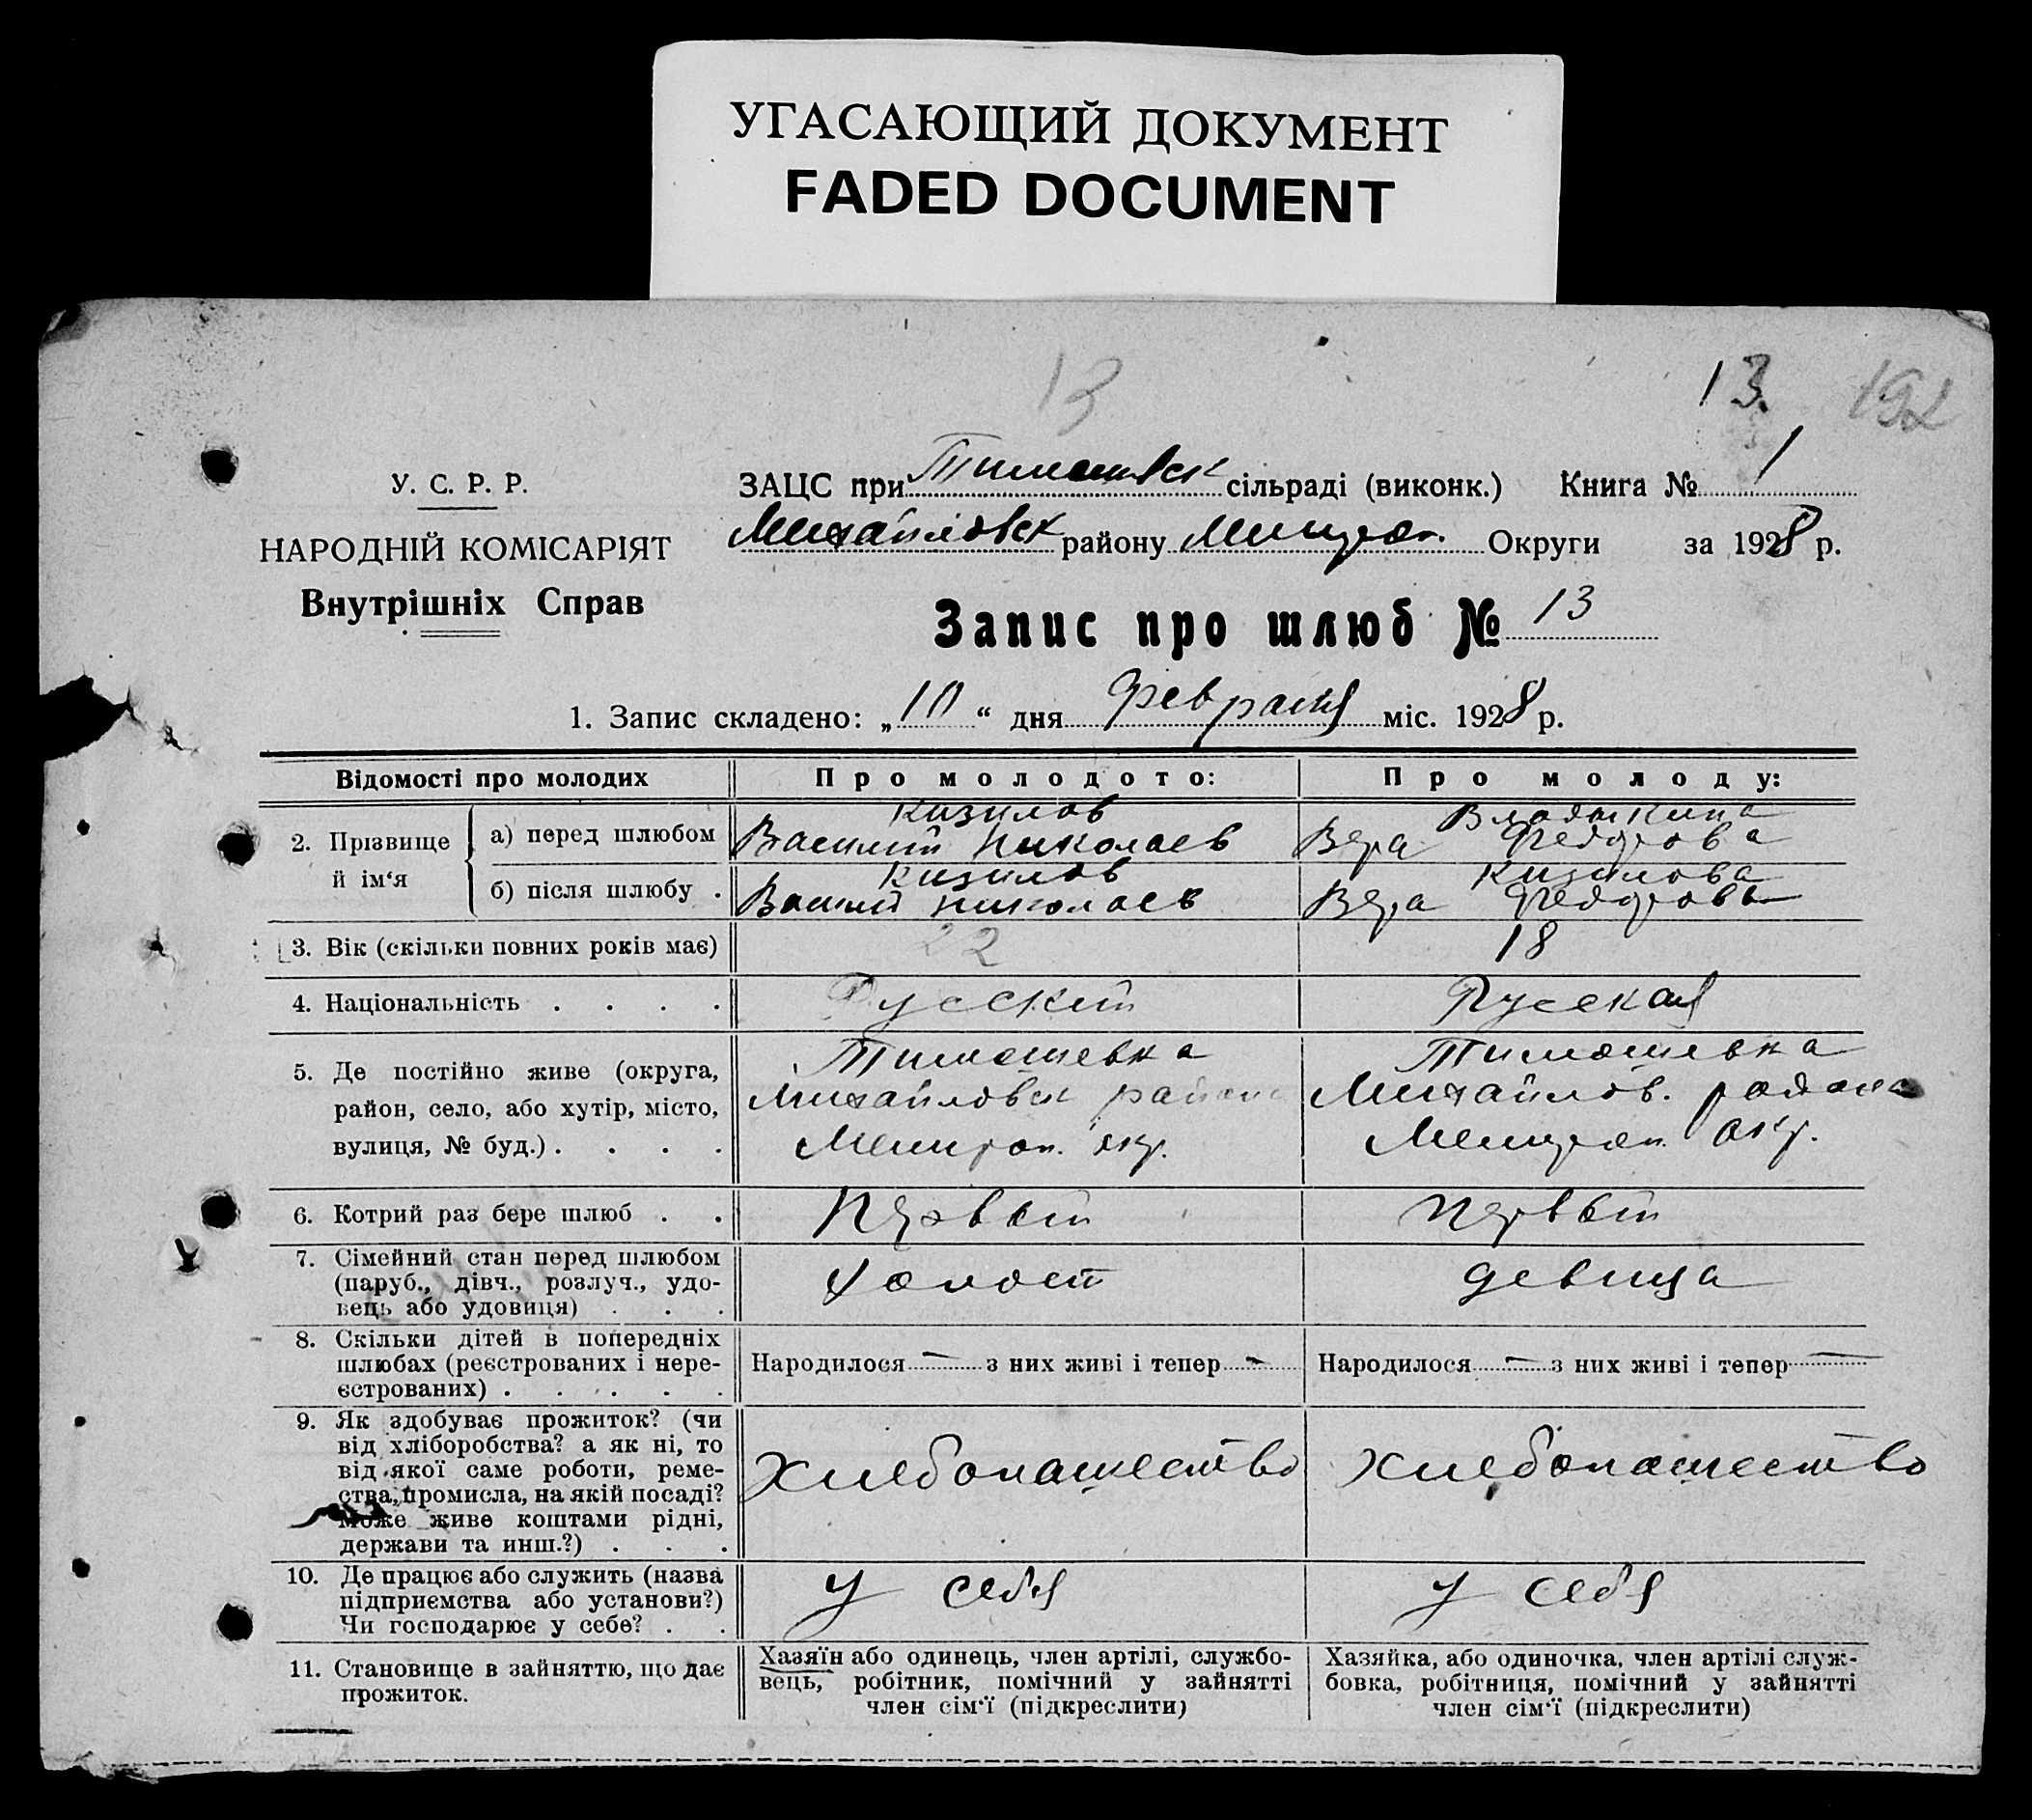 УГАСАЮЩИЙ ДОКУМЕНТ
FADED DOCUMENT
13
13. 192
У. С. Р. Р.
НАРОДНІЙ КОМІСАРІЯТ
Внутрішніх Справ
ЗАЦС при Тимошевск сільраді (виконк.) Книга № 1
Михайловск району Мелитоп. Округи за 1928 р.
Запис про шлюб № 13
1. Запис складено: „10“ дня февраля міс. 1928 р.
Відомості про молодих
Про молодого:
Про молоду:
2. Прізвище й ім‘я
а) перед шлюбом
Кизилов
Василий Николаев
Владыкина
Вера Федорова
б) після шлюбу .
Кизилов
Василий Николаев
Кизилова
Вера Федорова
3. Вік (скільки повних років має)
22
18
4. Національність . . . .
Русский
Русская
5. Де постійно живе (округа,
район, село, або хутір, місто,
вулиця, № буд.) . . . .
Тимошевка
Михайловск района
Мелитоп. окр.
Тимошевка
Михайлов. района
Мелитоп. окр.
6. Котрий раз бере шлюб . .
Первый
Первый
7. Сімейний стан перед шлюбом
(паруб., дівч., розлуч., удо-
вець або удовиця) . . .
Холост
девица
8. Скільки дітей в попередніх
шлюбах (реєстрованих і нере-
єстрованих) . . . . .
Народилося — з них живі і тепер —
Народилося — з них живі і тепер —
9. Як здобуває прожиток? (чи
від хліборобства? а як ні, то
від якої саме роботи, реме-
ства, промисла, на якій посаді?
може живе коштами рідні,
держави та инш.?) . . .
Хлебопашество
Хлебопашество
10. Де працює або служить (назва
підприємства або установи?)
Чи господарює у себе? . .
У себя
У себя
11. Становище в зайняттю, що дає
прожиток.
Хазяїн або одинець, член артілі, службо-
вець, робітник, помічний у зайнятті
член сім‘ї (підкреслити)
Хазяйка, або одиночка, член артілі служ-
бовка, робітниця, помічний у зайнятті
член сім‘ї (підкреслити)